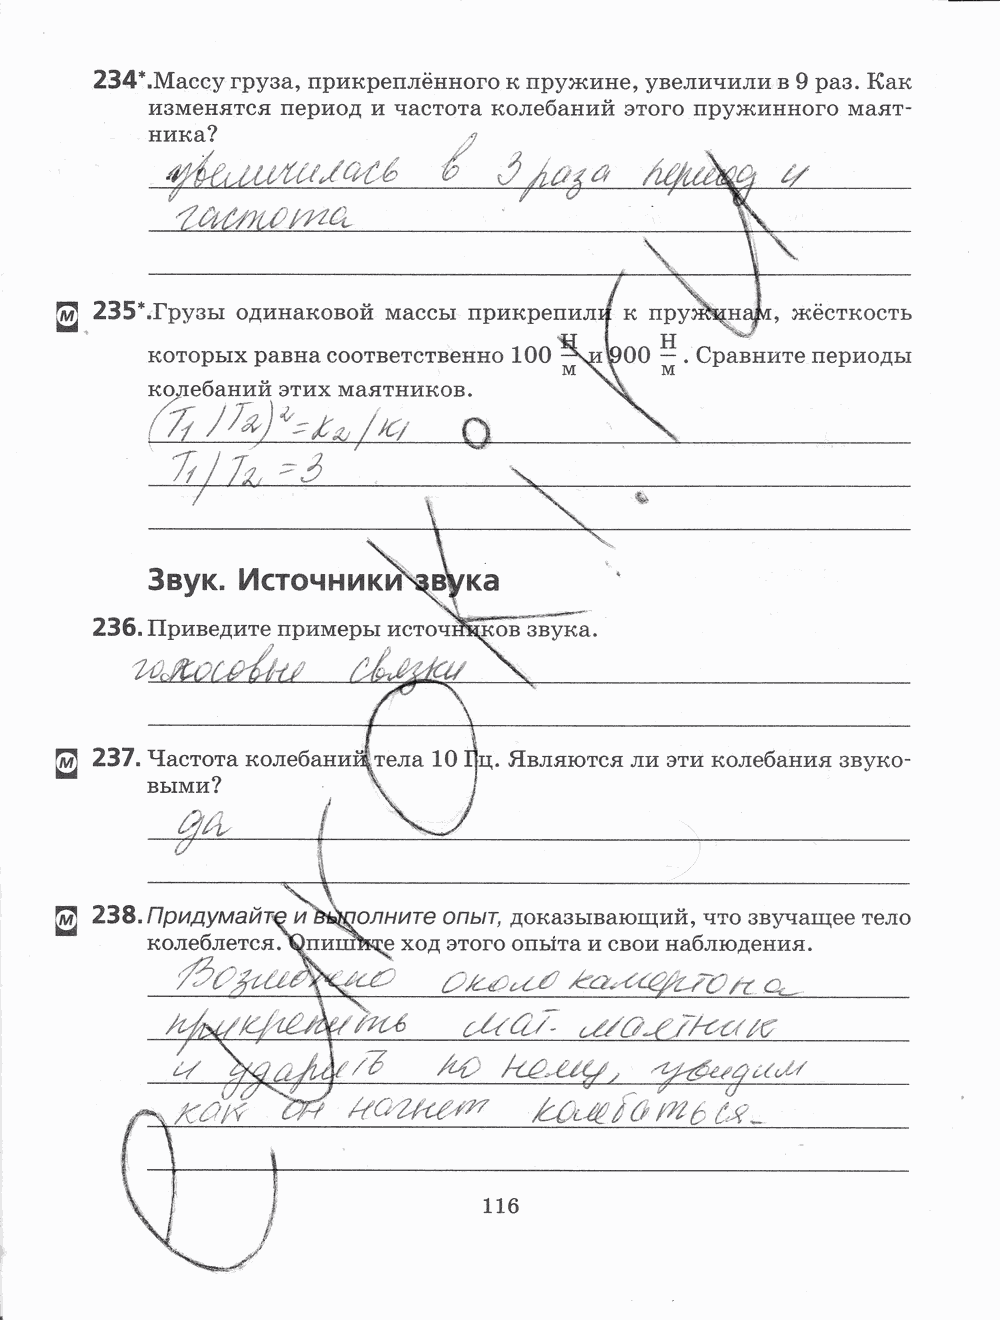 234*. Массу груза, прикреплённого к пружине, увеличили в 9 раз. Как
изменятся период и частота колебаний этого пружинного маят-
ника?
увеличилась в 3 раза период и
частота
М 235*. Грузы одинаковой массы прикрепили к пружинам, жёсткость
которых равна соответственно 100 Н/м и 900 Н/м. Сравните периоды
колебаний этих маятников.
(T1/T2)²=k2/k1
T1/T2=3
Звук. Источники звука
236. Приведите примеры источников звука.
голосовые связки
М 237. Частота колебаний тела 10 Гц. Являются ли эти колебания звуко-
выми?
да
М 238. Придумайте и выполните опыт, доказывающий, что звучащее тело
колеблется. Опишите ход этого опыта и свои наблюдения.
Возможно около камертона
прикрепить мат. маятник
и ударить по нему, увидим
как он начнет колебаться.
116